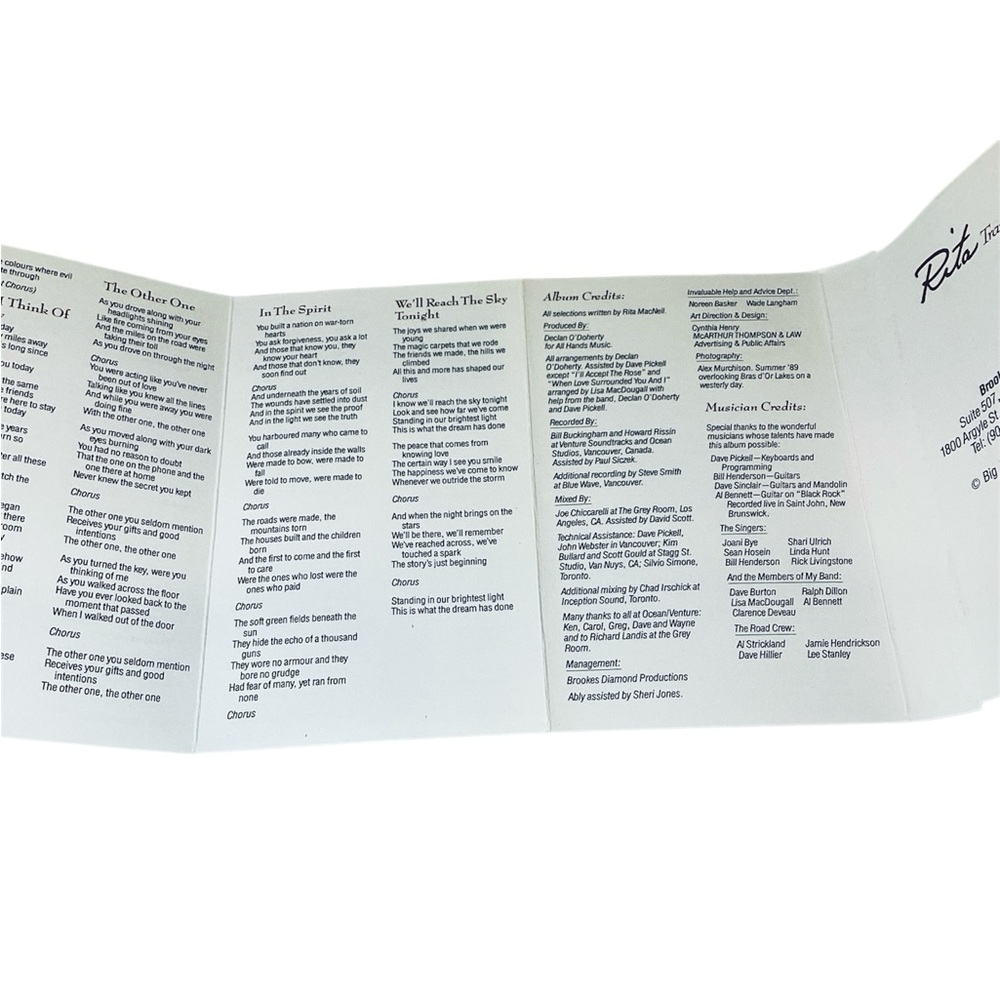 e colours where evil
te through
t Chorus)
I Think Of
day
y miles away
s long since
ou today
the same
e friends
re here to stay
today
e years
rn so
er all these
tch the
egan
there
oom
ehow
nd
plain
ese
The Other One
As you drove along with your
headlights shining
Like fire coming from your eyes
And the miles on the road were
taking their toll
As you drove on through the night
Chorus
You were acting like you've never
been out of love
Talking like you knew all the lines
And while you were away you were
doing fine
With the other one, the other one
As you moved along with your dark
eyes burning
You had no reason to doubt
That the one on the phone and the
one there at home
Never knew the secret you kept
Chorus
The other one you seldom mention
Receives your gifts and good
intentions
The other one, the other one
As you turned the key, were you
thinking of me
As you walked across the floor
Have you ever looked back to the
moment that passed
When I walked out of the door
Chorus
The other one you seldom mention
Receives your gifts and good
intentions
The other one, the other one
In The Spirit
You built a nation on war-torn
hearts
You ask forgiveness, you ask a lot
And those that know you, they
know your heart
And those that don't know, they
soon find out
Chorus
And underneath the years of soil
The wounds have settled into dust
And in the spirit we see the proof
And in the light we see the truth
You harboured many who came to
call
And those already inside the walls
Were made to bow, were made to
fall
Were told to move, were made to
die
Chorus
The roads were made, the
mountains torn
The houses built and the children
born
And the first to come and the first
to care
Were the ones who lost were the
ones who paid
Chorus
The soft green fields beneath the
sun
They hide the echo of a thousand
guns
They wore no armour and they
bore no grudge
Had fear of many, yet ran from
none
Chorus
We'll Reach The Sky
Tonight
The joys we shared when we were
young
The magic carpets that we rode
The friends we made, the hills we
climbed
All this and more has shaped our
lives
Chorus
I know we'll reach the sky tonight
Look and see how far we've come
Standing in our brightest light
This is what the dream has done
The peace that comes from
knowing love
The certain way I see you smile
The happiness we've come to know
Whenever we outride the storm
Chorus
And when the night brings on the
stars
We'll be there, we'll remember
We've reached across, we've
touched a spark
The story's just beginning
Chorus
Standing in our brightest light
This is what the dream has done
Album Credits:
All selections written by Rita MacNeil.
Produced By:
Declan O'Doherty
for All Hands Music.
All arrangements by Declan
O'Doherty. Assisted by Dave Pickell
except "I'll Accept The Rose" and
"When Love Surrounded You And I"
arranged by Lisa MacDougall with
help from the band, Declan O'Doherty
and Dave Pickell.
Recorded By:
Bill Buckingham and Howard Rissin
at Venture Soundtracks and Ocean
Studios, Vancouver, Canada.
Assisted by Paul Siczek.
Additional recording by Steve Smith
at Blue Wave, Vancouver.
Mixed By:
Joe Chiccarelli at The Grey Room, Los
Angeles, CA. Assisted by David Scott.
Technical Assistance: Dave Pickell,
John Webster in Vancouver; Kim
Bullard and Scott Gould at Stagg St.
Studio, Van Nuys, CA; Silvio Simone,
Toronto.
Additional mixing by Chad Irschick at
Inception Sound, Toronto.
Many thanks to all at Ocean/Venture:
Ken, Carol, Greg, Dave and Wayne
and to Richard Landis at the Grey
Room.
Management:
Brookes Diamond Productions
Ably assisted by Sheri Jones.
Invaluable Help and Advice Dept.:
Noreen Basker Wade Langham
Art Direction & Design:
Cynthia Henry
McARTHUR THOMPSON & LAW
Advertising & Public Affairs
Photography:
Alex Murchison. Summer '89
overlooking Bras d'Or Lakes on a
westerly day.
Musician Credits:
Special thanks to the wonderful
musicians whose talents have made
this album possible:
Dave Pickell—Keyboards and
Programming
Bill Henderson—Guitars
Dave Sinclair—Guitars and Mandolin
Al Bennett—Guitar on "Black Rock"
Recorded live in Saint John, New
Brunswick.
The Singers:
Joani Bye Shari Ulrich
Sean Hosein Linda Hunt
Bill Henderson Rick Livingstone
And the Members of My Band:
Dave Burton Ralph Dillon
Lisa MacDougall Al Bennett
Clarence Deveau
The Road Crew:
Al Strickland Jamie Hendrickson
Dave Hillier Lee Stanley
Rita Tra
Brook
Suite 507,
1800 Argyle S
Tel: (90
© Big